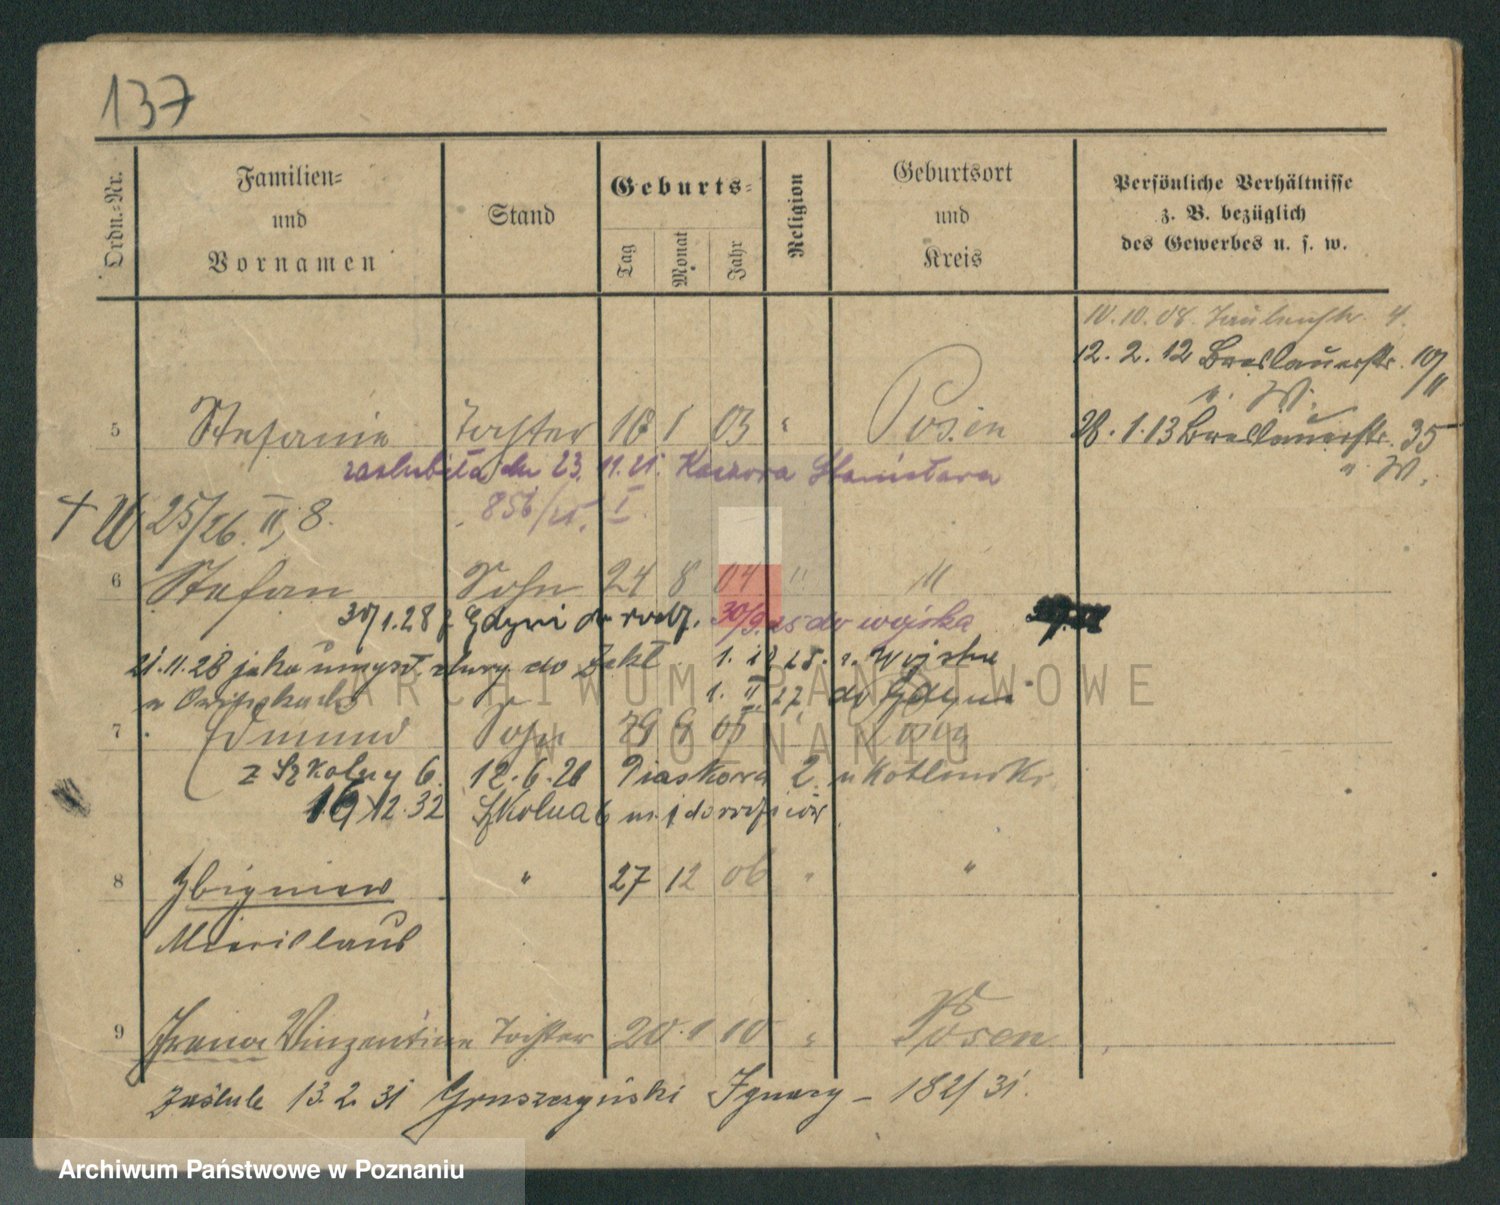 137
Ordn.-Nr.
Familien-
und
Vornamen
Stand
Geburts-
Tag
Monat
Jahr
Religion
Geburtsort
und
Kreis
Persönliche Verhältnisse
z. B. bezüglich
des Gewerbes u. s. w.
10.10.08. 4.
12. 2. 12 Breslauerstr. 10/II
5 Stefanie Tochter 1 03 " Posen 28. 1. 13 Breslauerstr. 35
zaślubiła dn 23. 11. 21. Kaczora Stanisława
856/21. I.
+ W 25/26. II, 8.
6 Stefan Sohn 24 8 04 " "
30/1.28 z Gdyni do rodz. 30/9 25 do wojska
21.11.28 jako umysł. chory do Zakł. 1. 28. z wojska
w Owińskach 1. II 27 do Gdyni
7 Edmund Sohn Posen
z Szkolny 6. 12.6.28 Piaskowa 2. u
16/12.32 Szkolna 6 m. 1 do rodziców
8 Zbigniew " 27 12 06 " "
Miecislaus
9 Irena Vinzentine Tochter 20. 1 10 " Posen
zaślub. 13. 2. 31 Gruszczyński Ignacy - 182/31.
ARCHIWUM PAŃSTWOWE
W POZNANIU
Archiwum Państwowe w Poznaniu